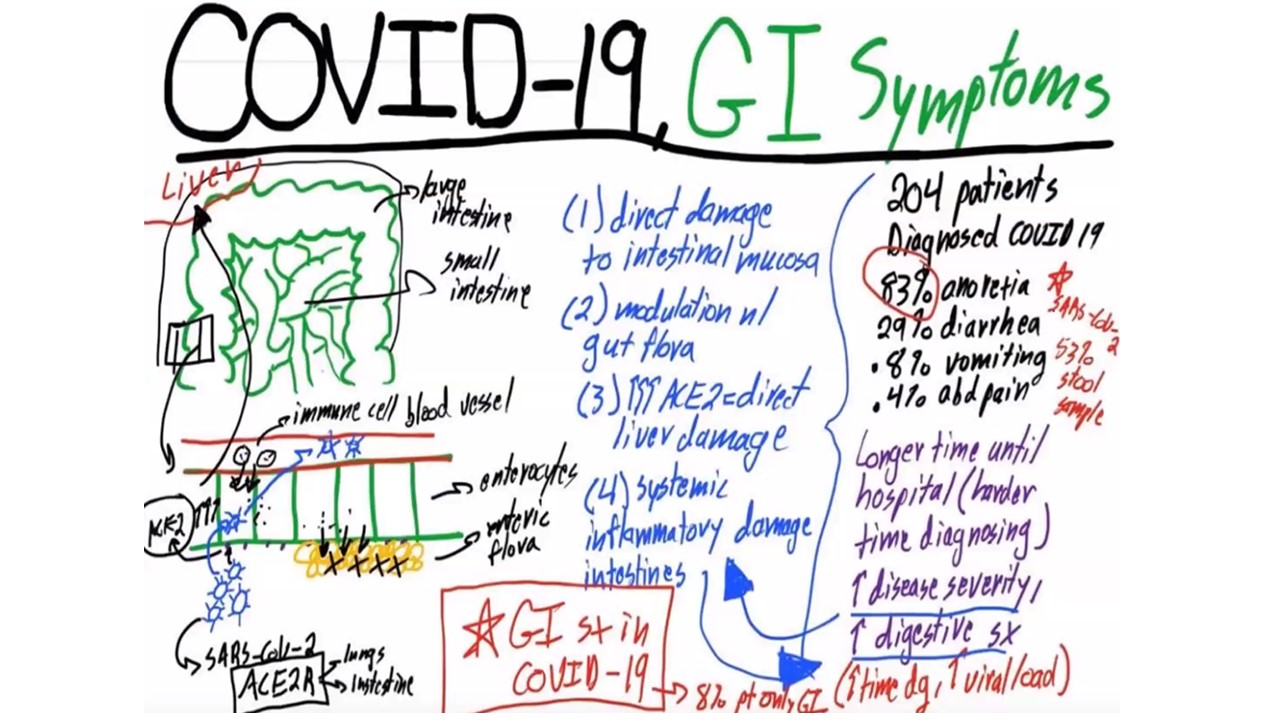 COVID-19, GI Symptoms
Liver
large
intestine
small
intestine
immune cell blood vessel
enterocytes
enteric
flova
ACE2 ↑↑↑
SARS-CoV-2
ACE2R
lungs
instestine
(1) direct damage
to intestinal mucosa
(2) modulation n/
gut flova
(3) ↑↑↑ ACE2=direct
liver damage
(4) systemic
inflammatory damage
intestines
☆ GI sx in
COVID-19
→ 8% pt only GI
204 patients
Diagnosed COVID 19
83% anoretia
29% diarrhea
.8% vomiting
.4% abd pain
☆
SARS-CoV-2
53%
stool
sample
Longer time until
hospital (harder
time diagnosing)
↑ disease severity,
↑ digestive sx
(↑time dg, ↑viral load)